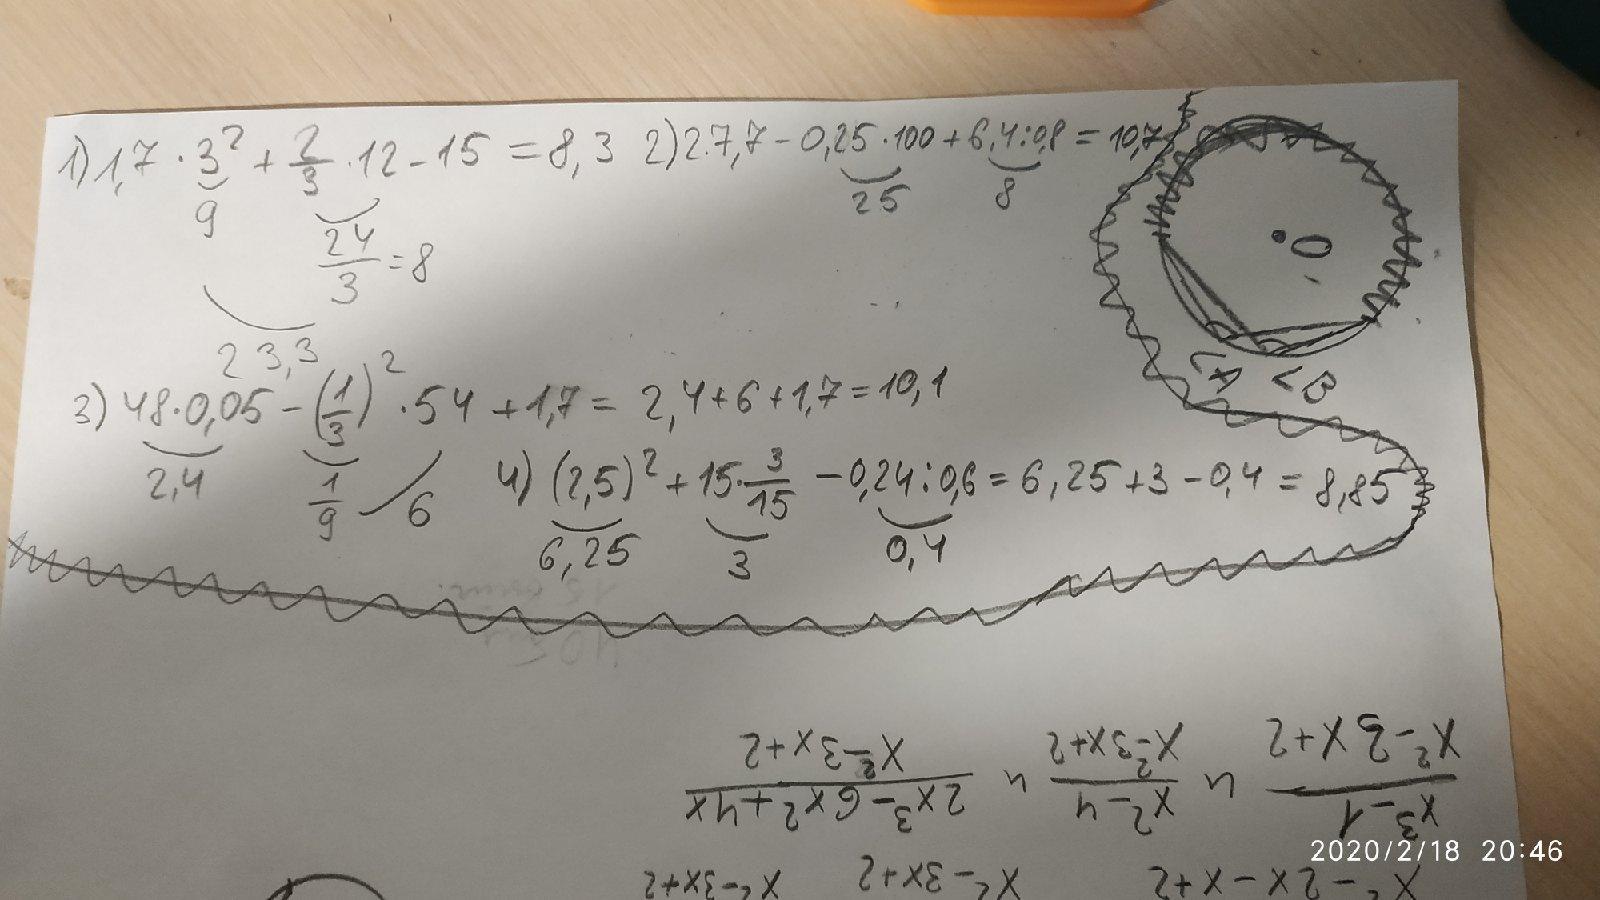 1) 1,7 · 3² + 2/3 · 12 - 15 = 8,3
9
24/3 = 8
23,3
2) 2·7,7 - 0,25 · 100 + 6,4 : 0,8 = 10,7
25
8
O
<A <B
3) 48 · 0,05 - (1/3)² · 54 + 1,7 = 2,4 + 6 + 1,7 = 10,1
2,4
1/9
6
4) (2,5)² + 15 · 3/15 - 0,24 : 0,6 = 6,25 + 3 - 0,4 = 8,85
6,25
3
0,4
x² - 2x - x + 2
x² - 3x + 2
x² - 3x + 2
x³ - 1 / x² - 3x + 2 и x² - 4 / x² - 3x + 2 и 2x³ - 6x² + 4x / x² - 3x + 2
2020/2/18 20:46